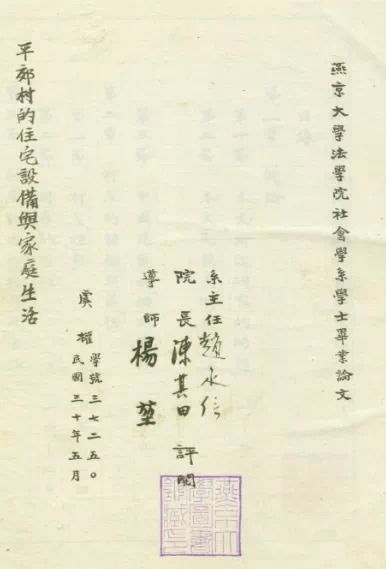 燕京大學法學院社會學系學士畢業論文
系主任趙承信
院長陳其田 評閱
導師楊堃
虞權 學號三七二五〇
民國三十年五月
平郊村的住宅設備與家庭生活
燕京大
學圖書
館藏印